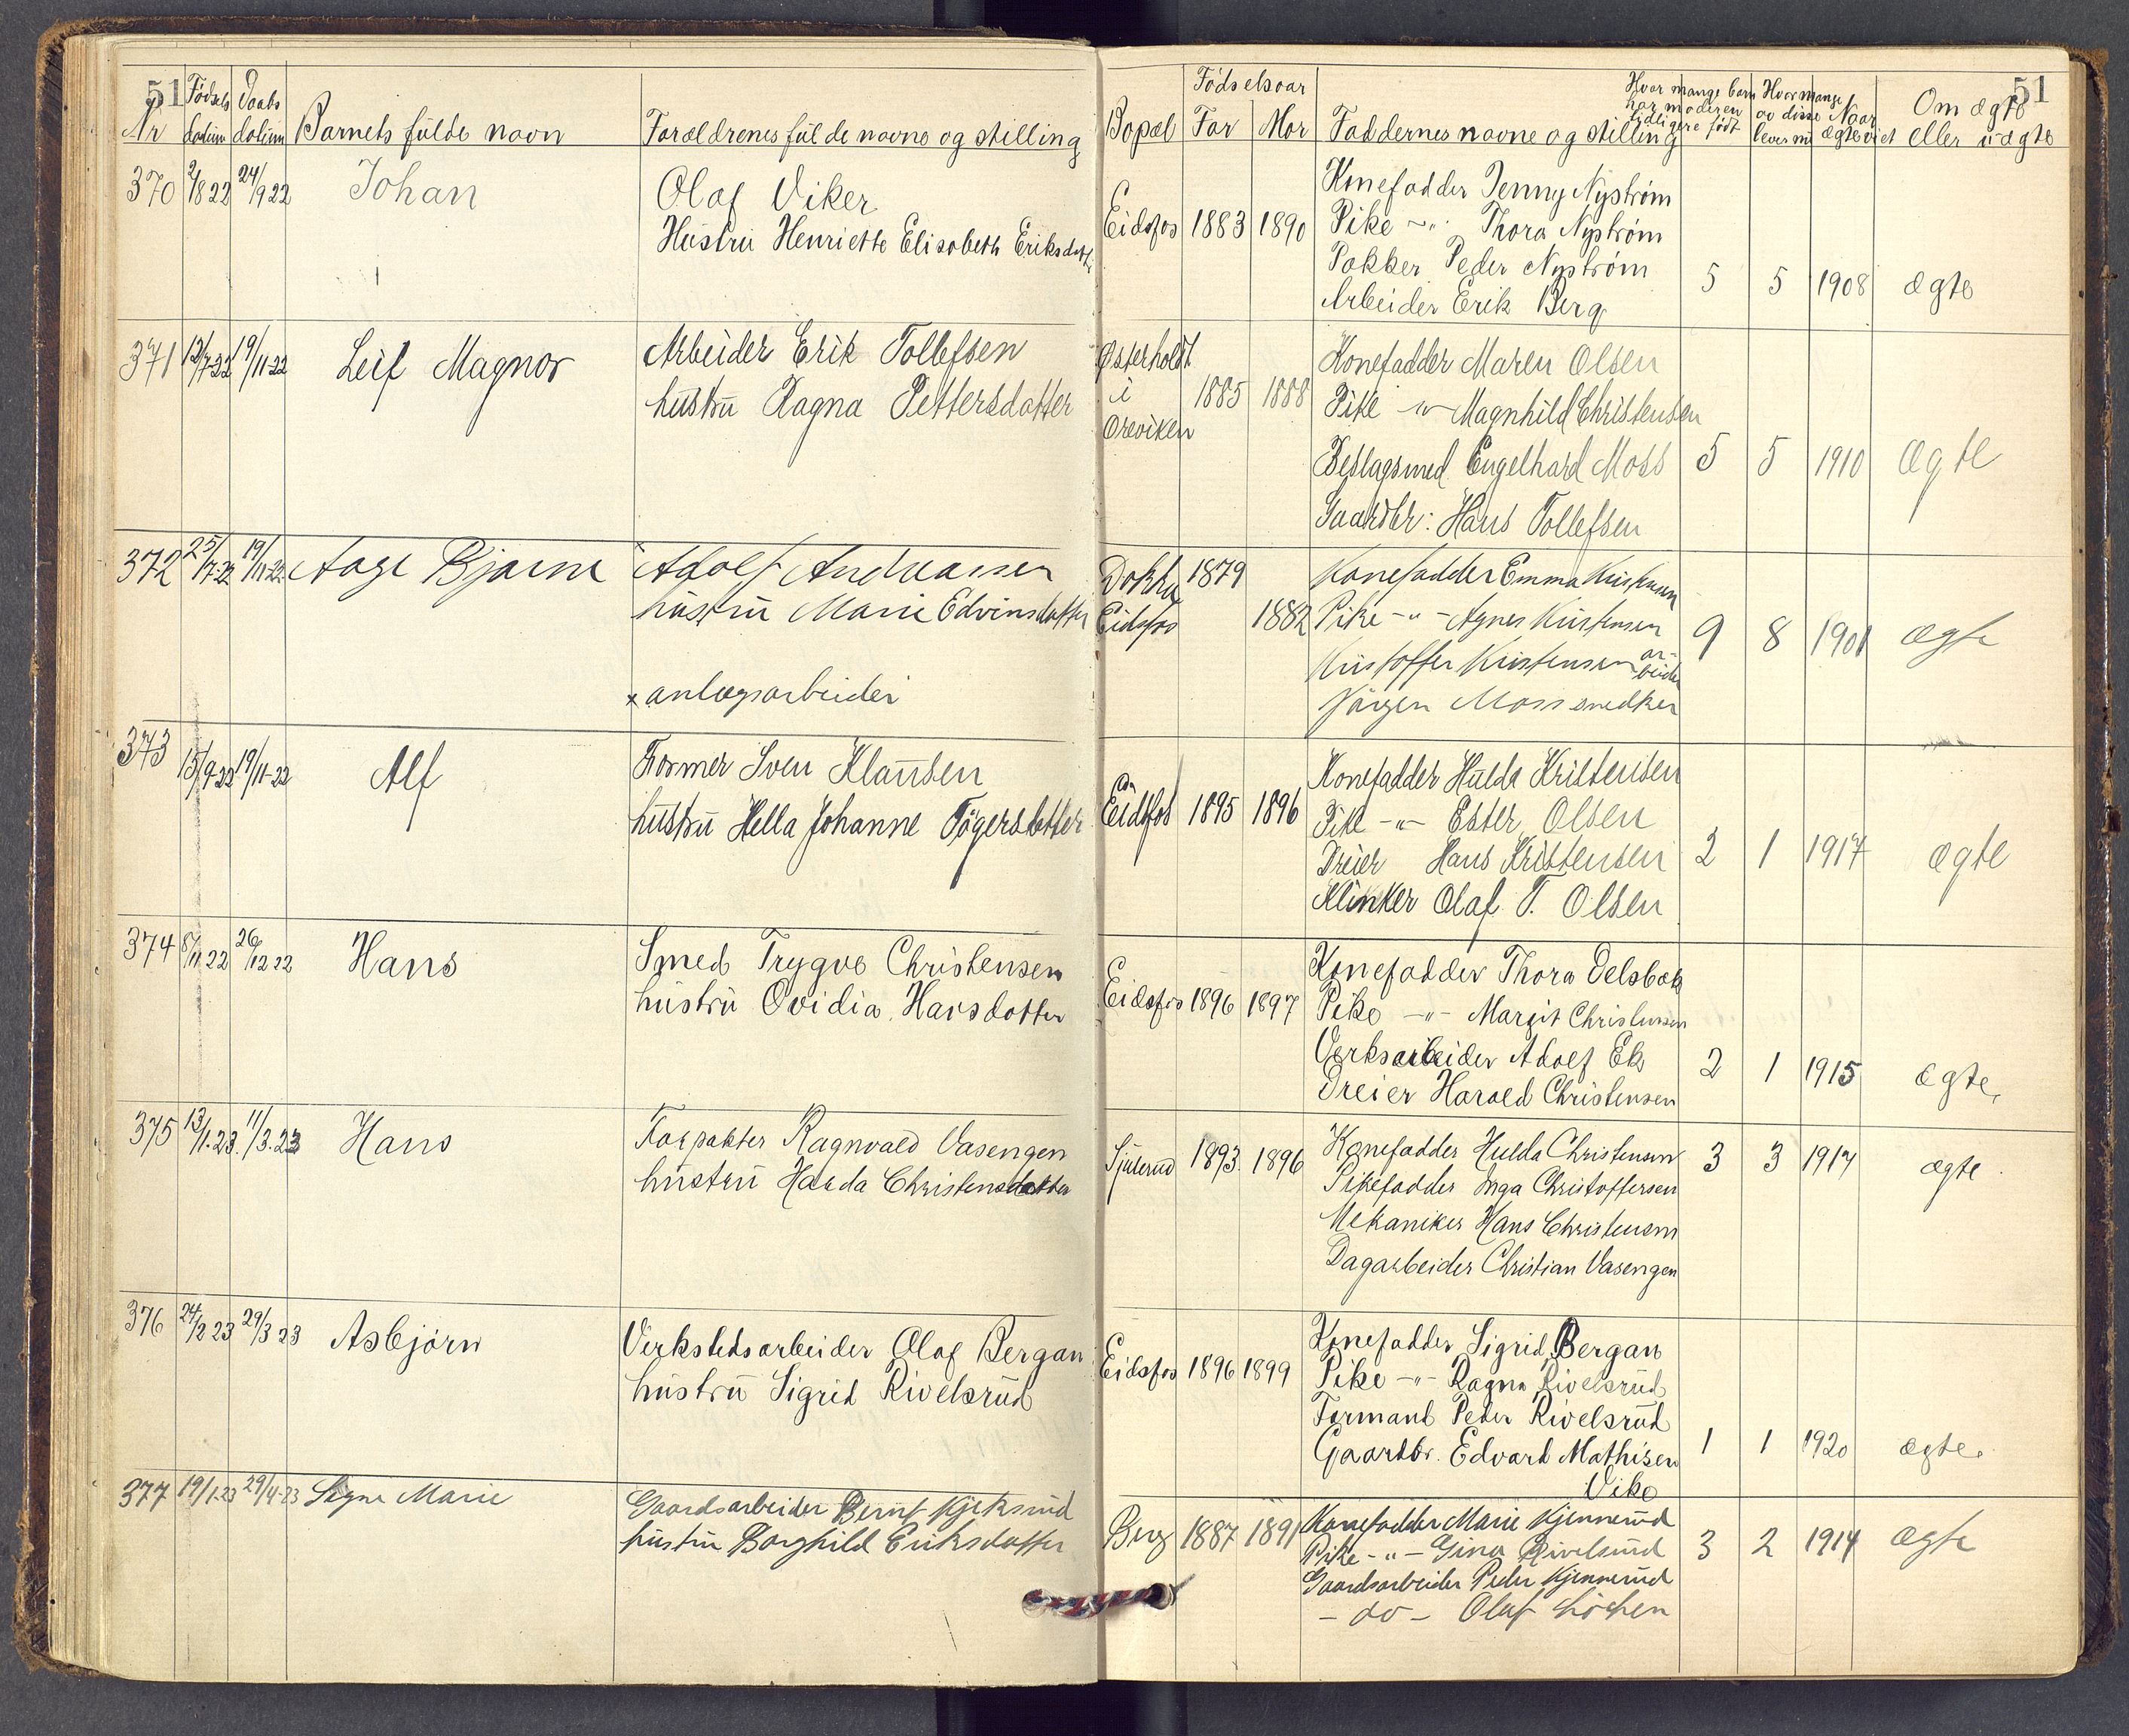 51
Nr
Fødsels datum
Daabs datum
Barnets fulde navn
Forældrenes fulde navne og stilling
Bopæl
Fødselsaar
Far
Mor
Faddernes navne og stilling
Hvor mange barn har moderen tidligere født
Hvor mange av disse lever nu
Naar egteviet
Om ægte eller uægte
51
370 2/8 22 24/9 22 Johan
Olaf Viker
Hustru Henriette Elisabeth Eriksdatter
Eidsfos 1883 1890
Konefadder Jenny Nystrøm
Pike -"- Thora Nystrøm
Pakker Peder Nystrøm
Arbeider Erik Berg
5 5 1908 ægte
371 12/7-22 19/11-22 Leif Magnor
Arbeider Erik Tollefsen
hustru Ragna Pettersdatter
Østerholdt
i
Oreviken
1885 1888
Konefadder Maren Olsen
Pike -"- Magnhild Christensen
Beslagsmed Engelhard Moss
Gaardbr: Hans Tollefsen
5 5 1910 Ægte
372 25/7-22 19/11-22 Aage Bjarne
x Adolf Andreassen
hustru Marie Edvinsdatter
x anlægsarbeider
Dokka
Eidsfos
1879 1882
Konefadder Emma Kristensen
Pike -"- Agnes Kristensen
Kristoffer Kristensen arbeider
Jörgen Moss snedker
9 8 1901 ægte
373 15/9-22 19/11-22 Alf
Former Sven Klausen
hustru Hella Johanne Tögersdatter
Eidsfos 1895 1896
Konefadder Hulda Kristensen
Pike -"- Ester Olsen
Dreier Hans Kristensen
Klinker Olaf T. Olsen
2 1 1917 ægte
374 8/11 22 26/12 22 Hans
Smed Trygve Christensen
hustru Ovidia Hansdatter
Eidsfos 1896 1897
Konefadder Thora Delsbæk
Pike -"- Margit Christensen
Verksarbeider Adolf Ek
Dreier Harald Christensen
2 1 1915 ægte
375 13/1.23. 11/3.23 Hans
Forpakter Ragnvald Vasengen
hustru Harda Christensdatter
Sjulerud 1893 1896
Konefadder Hulda Christensen
Pikefadder Inga Christoffersen
Mekaniker Hans Christensen
Dagarbeider Christian Vasengen
3 3 1917 ægte
376 24/2 23 29/3 23 Asbjörn
Verkstedsarbeider Olaf Bergan
hustru Sigrid Rivelsrud
Eidsfos 1896 1899
Konefadder Sigrid Bergan
Pike -"- Ragna Rivelsrud
Formand Peder Rivelsrud
Gaardbr. Edvard Mathisen
Vike
1 1 1920 ægte.
377 19/1.23 29/4-23 Signe Marie
Gaardsarbeider Bernt Kjeksrud
hustru Borghild Eriksdatter
Berg 1887 1891
Konefadder Marie Kjennerud
Pike -"- Gina Rivelsrud
Gaardsarbeider Peder Kjennerud
- do - Olaf
3 2 1914 ægte